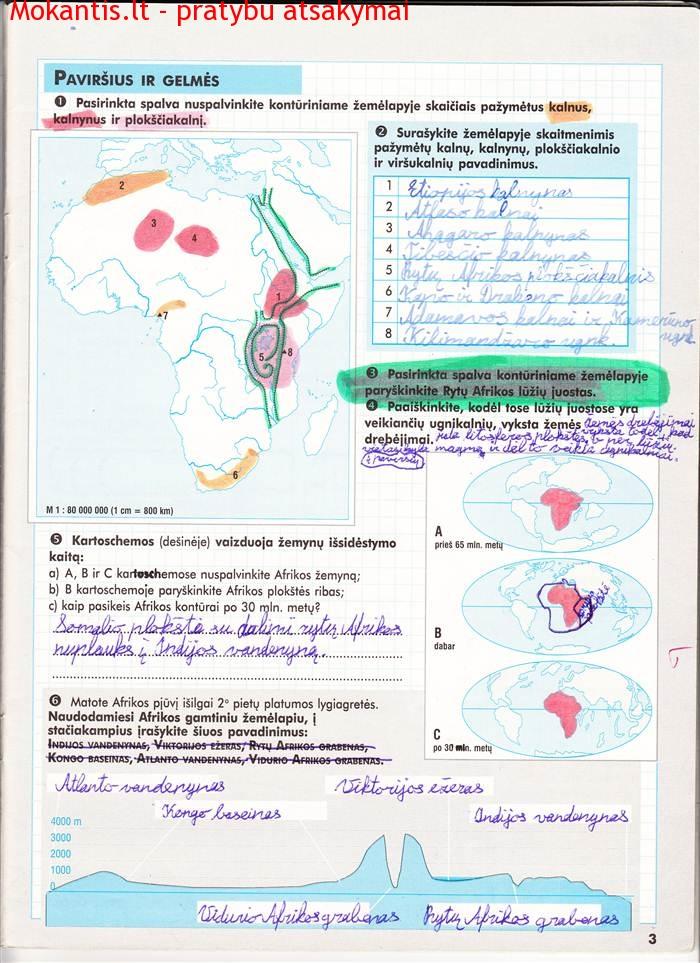 Mokantis.lt - pratybu atsakymai
PAVIRŠIUS IR GELMĖS
1 Pasirinkta spalva nuspalvinkite kontūriniame žemėlapyje skaičiais pažymėtus kalnus,
kalnynus ir plokščiakalnį.
2
3
4
1
7
5
8
6
M 1 : 80 000 000 (1 cm = 800 km)
2 Surašykite žemėlapyje skaitmenimis
pažymėtų kalnų, kalnynų, plokščiakalnio
ir viršukalnių pavadinimus.
1 Etiopijos kalnynas
2 Atlaso kalnai
3 Ahagaro kalnynas
4 Tibesčio kalnynas
5 Rytų Afrikos plokščiakalnis
6 Kapo ir Drakono kalnai
7 Adamavos kalnai ir Kamerūno ugnk.
8 Kilimandžaro ugnk.
3 Pasirinkta spalva kontūriniame žemėlapyje
paryškinkite Rytų Afrikos lūžių juostas.
4 Paaiškinkite, kodėl tose lūžių juostose yra
veikiančių ugnikalnių, vyksta žemės
drebėjimai.
žemės drebėjimai
vyksta todėl, kad
juda litosferos plokštės, o per lūžius
magma ir dėl to veikia ugnikalniai.
į paviršių
5 Kartoschemos (dešinėje) vaizduoja žemynų išsidėstymo
kaitą:
a) A, B ir C kartoschemose nuspalvinkite Afrikos žemyną;
b) B kartoschemoje paryškinkite Afrikos plokštės ribas;
c) kaip pasikeis Afrikos kontūrai po 30 mln. metų?
Somalio plokštė su dalimi rytų Afrikos
nuplauks į Indijos vandenyną.
A
prieš 65 mln. metų
B
dabar
C
po 30 mln. metų
6 Matote Afrikos pjūvį išilgai 2° pietų platumos lygiagretės.
Naudodamiesi Afrikos gamtiniu žemėlapiu, į
stačiakampius įrašykite šiuos pavadinimus:
INDIJOS VANDENYNAS, VIKTORIJOS EŽERAS, RYTŲ AFRIKOS GRABENAS,
KONGO BASEINAS, ATLANTO VANDENYNAS, VIDURIO AFRIKOS GRABENAS.
Atlanto vandenynas
Viktorijos ežeras
Kongo baseinas
Indijos vandenynas
4000 m
3000
2000
1000
0
Vidurio Afrikos grabenas
Rytų Afrikos grabenas
3